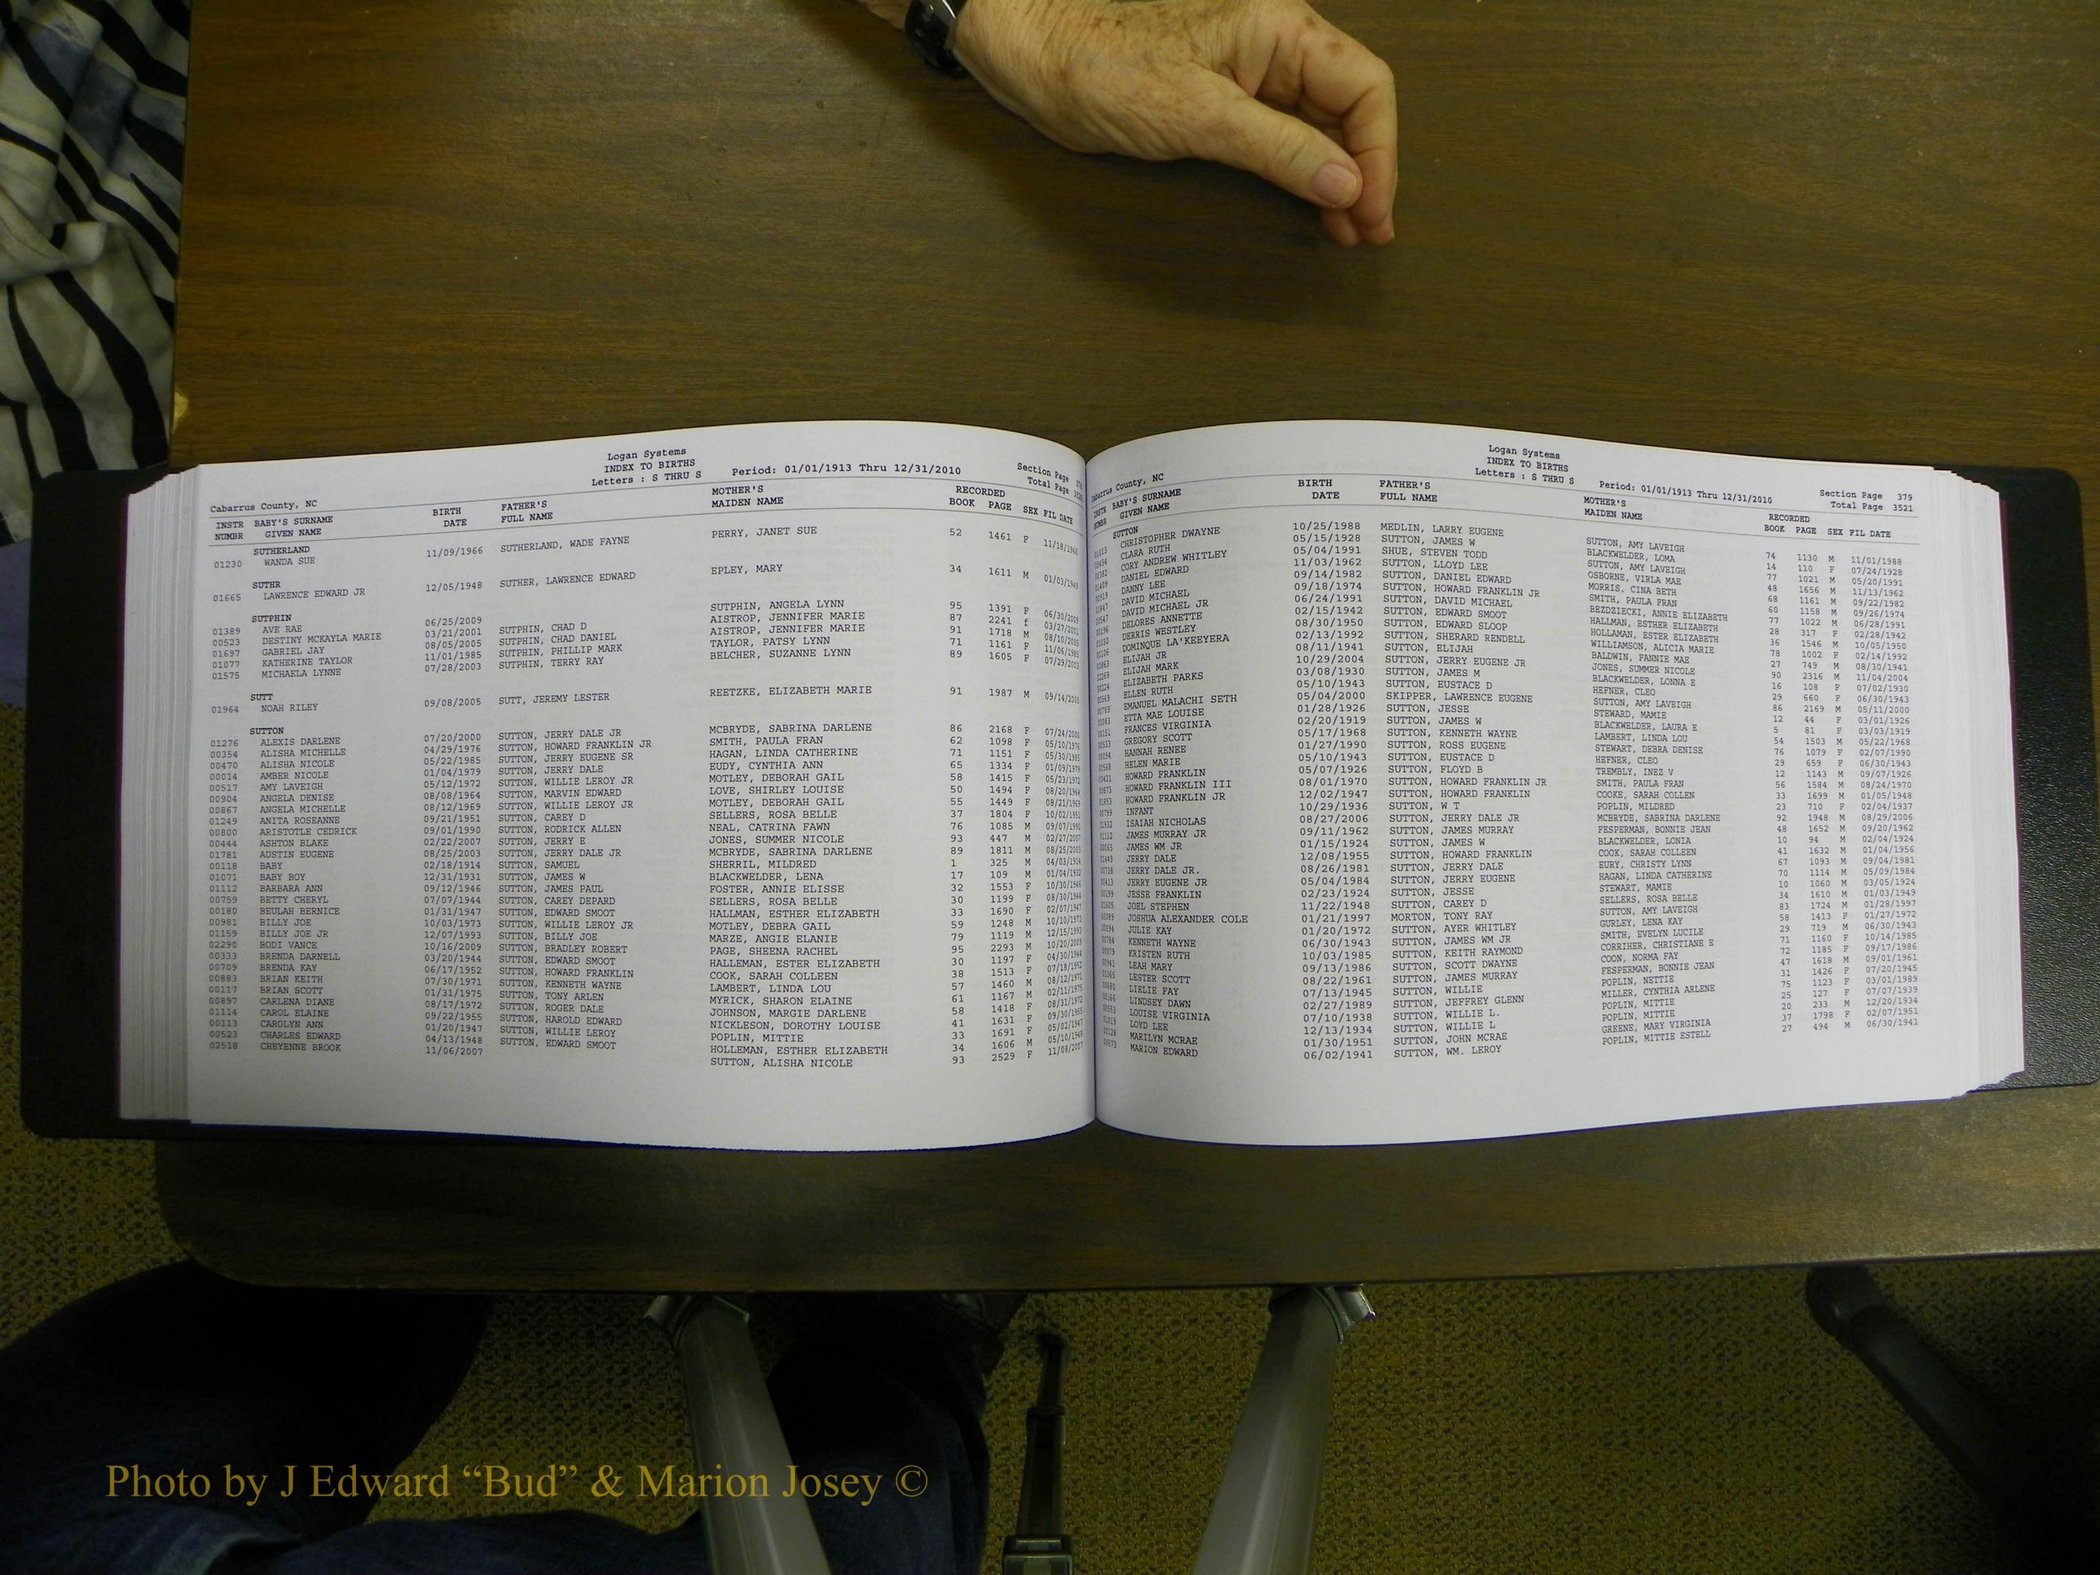 Logan Systems
INDEX TO BIRTHS
Letters : S THRU S Period: 01/01/1913 Thru 12/31/2010
Section Page
Total Page
Cabarrus County, NC
INSTR BABY'S SURNAME BIRTH FATHER'S MOTHER'S RECORDED
NUMBR GIVEN NAME DATE FULL NAME MAIDEN NAME BOOK PAGE SEX FIL DATE
SUTHERLAND
01230 WANDA SUE 11/09/1966 SUTHERLAND, WADE FAYNE PERRY, JANET SUE 52 1461 F 11/18/1966
SUTHR
01665 LAWRENCE EDWARD JR 12/05/1948 SUTHER, LAWRENCE EDWARD EPLEY, MARY 34 1611 M 01/03/1949
SUTPHIN
01389 AVE RAE 06/25/2009 SUTPHIN, ANGELA LYNN 95 1391 F 06/30/2009
00523 DESTINY MCKAYLA MARIE 03/21/2001 SUTPHIN, CHAD D AISTROP, JENNIFER MARIE 87 2241 f 03/27/2001
01697 GABRIEL JAY 08/05/2005 SUTPHIN, CHAD DANIEL AISTROP, JENNIFER MARIE 91 1718 M 08/10/2005
01077 KATHERINE TAYLOR 11/01/1985 SUTPHIN, PHILLIP MARK TAYLOR, PATSY LYNN 71 1161 F 11/06/1985
01575 MICHAELA LYNNE 07/28/2003 SUTPHIN, TERRY RAY BELCHER, SUZANNE LYNN 89 1605 F 07/29/2003
SUTT
01964 NOAH RILEY 09/08/2005 SUTT, JEREMY LESTER REETZKE, ELIZABETH MARIE 91 1987 M 09/14/2005
SUTTON
01276 ALEXIS DARLENE 07/20/2000 SUTTON, JERRY DALE JR MCBRYDE, SABRINA DARLENE 86 2168 F 07/24/2000
00354 ALISHA MICHELLE 04/29/1976 SUTTON, HOWARD FRANKLIN JR SMITH, PAULA FRAN 62 1098 F 05/10/1976
00470 ALISHA NICOLE 05/22/1985 SUTTON, JERRY EUGENE SR HAGAN, LINDA CATHERINE 71 1151 F 05/30/1985
00014 AMBER NICOLE 01/04/1979 SUTTON, JERRY DALE EUDY, CYNTHIA ANN 65 1334 F 01/09/1979
00517 AMY LAVEIGH 05/12/1972 SUTTON, WILLIE LEROY JR MOTLEY, DEBORAH GAIL 58 1415 F 05/23/1972
00904 ANGELA DENISE 08/08/1964 SUTTON, MARVIN EDWARD LOVE, SHIRLEY LOUISE 50 1494 F 08/20/1964
00867 ANGELA MICHELLE 08/12/1969 SUTTON, WILLIE LEROY JR MOTLEY, DEBORAH GAIL 55 1449 F 08/21/1969
01249 ANITA ROSEANNE 09/21/1951 SUTTON, CAREY D SELLERS, ROSA BELLE 37 1804 F 10/02/1951
00800 ARISTOTLE CEDRICK 09/01/1990 SUTTON, RODRICK ALLEN NEAL, CATRINA FAWN 76 1085 M 09/07/1990
00444 ASHTON BLAKE 02/22/2007 SUTTON, JERRY E JONES, SUMMER NICOLE 93 447 M 02/27/2007
01781 AUSTIN EUGENE 08/25/2003 SUTTON, JERRY DALE JR MCBRYDE, SABRINA DARLENE 89 1811 M 08/25/2003
00118 BABY 02/18/1914 SUTTON, SAMUEL SHERRIL, MILDRED 1 325 M 04/03/1914
01071 BABY BOY 12/31/1931 SUTTON, JAMES W BLACKWELDER, LENA 17 109 M 01/04/1932
01112 BARBARA ANN 09/12/1946 SUTTON, JAMES PAUL FOSTER, ANNIE ELISSE 32 1553 F 10/30/1946
00759 BETTY CHERYL 07/07/1944 SUTTON, CAREY DEPARD SELLERS, ROSA BELLE 30 1199 F 08/30/1944
00180 BEULAH BERNICE 01/31/1947 SUTTON, EDWARD SMOOT HALLMAN, ESTHER ELIZABETH 33 1690 F 02/07/1947
00981 BILLY JOE 10/03/1973 SUTTON, WILLIE LEROY JR MOTLEY, DEBRA GAIL 59 1248 M 10/10/1973
01159 BILLY JOE JR 12/07/1993 SUTTON, BILLY JOE MARZE, ANGIE ELANIE 79 1119 M 12/15/1993
02290 BODI VANCE 10/16/2009 SUTTON, BRADLEY ROBERT PAGE, SHEENA RACHEL 95 2293 M 10/20/2009
00333 BRENDA DARNELL 03/20/1944 SUTTON, EDWARD SMOOT HALLEMAN, ESTER ELIZABETH 30 1197 F 04/30/1944
00709 BRENDA KAY 06/17/1952 SUTTON, HOWARD FRANKLIN COOK, SARAH COLLEEN 38 1513 F 07/18/1952
00883 BRIAN KEITH 07/30/1971 SUTTON, KENNETH WAYNE LAMBERT, LINDA LOU 57 1460 M 08/12/1971
00117 BRIAN SCOTT 01/31/1975 SUTTON, TONY ARLEN MYRICK, SHARON ELAINE 61 1167 M 02/11/1975
00897 CARLENA DIANE 08/17/1972 SUTTON, ROGER DALE JOHNSON, MARGIE DARLENE 58 1418 F 08/31/1972
01114 CAROL ELAINE 09/22/1955 SUTTON, HAROLD EDWARD NICKLESON, DOROTHY LOUISE 41 1631 F 09/30/1955
00113 CAROLYN ANN 01/20/1947 SUTTON, WILLIE LEROY POPLIN, MITTIE 33 1691 F 05/02/1947
00523 CHARLES EDWARD 04/13/1948 SUTTON, EDWARD SMOOT HOLLEMAN, ESTHER ELIZABETH 34 1606 M 05/10/1948
02518 CHEYENNE BROOK 11/06/2007 SUTTON, ALISHA NICOLE 93 2529 F 11/08/2007
Logan Systems
INDEX TO BIRTHS
Letters : S THRU S Period: 01/01/1913 Thru 12/31/2010
Section Page 379
Total Page 3521
Cabarrus County, NC
INSTR BABY'S SURNAME BIRTH FATHER'S MOTHER'S RECORDED
NUMBR GIVEN NAME DATE FULL NAME MAIDEN NAME BOOK PAGE SEX FIL DATE
SUTTON
CHRISTOPHER DWAYNE 10/25/1988 MEDLIN, LARRY EUGENE SUTTON, AMY LAVEIGH 74 1130 M 11/01/1988
CLARA RUTH 05/15/1928 SUTTON, JAMES W BLACKWELDER, LOMA 14 110 F 07/24/1928
CORY ANDREW WHITLEY 05/04/1991 SHUE, STEVEN TODD SUTTON, AMY LAVEIGH 77 1021 M 05/20/1991
DANIEL EDWARD 11/03/1962 SUTTON, LLOYD LEE OSBORNE, VIRLA MAE 48 1656 M 11/13/1962
DANNY LEE 09/14/1982 SUTTON, DANIEL EDWARD MORRIS, CINA BETH 68 1161 M 09/22/1982
DAVID MICHAEL 09/18/1974 SUTTON, HOWARD FRANKLIN JR SMITH, PAULA FRAN 60 1158 M 09/26/1974
DAVID MICHAEL JR 06/24/1991 SUTTON, DAVID MICHAEL BEZDZIECKI, ANNIE ELIZABETH 77 1022 M 06/28/1991
DELORES ANNETTE 02/15/1942 SUTTON, EDWARD SMOOT HALLMAN, ESTHER ELIZABETH 28 317 F 02/28/1942
DERRIS WESTLEY 08/30/1950 SUTTON, EDWARD SLOOP HOLLAMAN, ESTER ELIZABETH 36 1546 M 10/05/1950
DOMINQUE LA'KEEYERA 02/13/1992 SUTTON, SHERARD RENDELL WILLIAMSON, ALICIA MARIE 78 1002 F 02/14/1992
ELIJAH JR 08/11/1941 SUTTON, ELIJAH BALDWIN, FANNIE MAE 27 749 M 08/30/1941
ELIJAH MARK 10/29/2004 SUTTON, JERRY EUGENE JR JONES, SUMMER NICOLE 90 2316 M 11/04/2004
ELIZABETH PARKS 03/08/1930 SUTTON, JAMES M BLACKWELDER, LONNA E 16 108 F 07/02/1930
ELLEN RUTH 05/10/1943 SUTTON, EUSTACE D HEFNER, CLEO 29 660 F 06/30/1943
EMANUEL MALACHI SETH 05/04/2000 SKIPPER, LAWRENCE EUGENE SUTTON, AMY LAVEIGH 86 2169 M 05/11/2000
ETTA MAE LOUISE 01/28/1926 SUTTON, JESSE STEWARD, MAMIE 12 44 F 03/01/1926
FRANCES VIRGINIA 02/20/1919 SUTTON, JAMES W BLACKWELDER, LAURA E 5 81 F 03/03/1919
GREGORY SCOTT 05/17/1968 SUTTON, KENNETH WAYNE LAMBERT, LINDA LOU 54 1503 M 05/22/1968
HANNAH RENEE 01/27/1990 SUTTON, ROSS EUGENE STEWART, DEBRA DENISE 76 1079 F 02/07/1990
HELEN MARIE 05/10/1943 SUTTON, EUSTACE D HEFNER, CLEO 29 659 F 06/30/1943
HOWARD FRANKLIN 05/07/1926 SUTTON, FLOYD B TREMBLY, INEZ V 12 1143 M 09/07/1926
HOWARD FRANKLIN III 08/01/1970 SUTTON, HOWARD FRANKLIN JR SMITH, PAULA FRAN 56 1584 M 08/24/1970
HOWARD FRANKLIN JR 12/02/1947 SUTTON, HOWARD FRANKLIN COOKE, SARAH COLLEN 33 1699 M 01/05/1948
INFANT 10/29/1936 SUTTON, W T POPLIN, MILDRED 23 710 F 02/04/1937
ISAIAH NICHOLAS 08/27/2006 SUTTON, JERRY DALE JR MCBRYDE, SABRINA DARLENE 92 1948 M 08/29/2006
JAMES MURRAY JR 09/11/1962 SUTTON, JAMES MURRAY FESPERMAN, BONNIE JEAN 48 1652 M 09/20/1962
JAMES WM JR 01/15/1924 SUTTON, JAMES W BLACKWELDER, LONIA 10 94 M 02/04/1924
JERRY DALE 12/08/1955 SUTTON, HOWARD FRANKLIN COOK, SARAH COLLEEN 41 1632 M 01/04/1956
JERRY DALE JR. 08/26/1981 SUTTON, JERRY DALE EURY, CHRISTY LYNN 67 1093 M 09/04/1981
JERRY EUGENE JR 05/04/1984 SUTTON, JERRY EUGENE HAGAN, LINDA CATHERINE 70 1114 M 05/09/1984
JESSE FRANKLIN 02/23/1924 SUTTON, JESSE STEWART, MAMIE 10 1060 M 03/05/1924
JOEL STEPHEN 11/22/1948 SUTTON, CAREY D SELLERS, ROSA BELLE 34 1610 M 01/03/1949
JOSHUA ALEXANDER COLE 01/21/1997 MORTON, TONY RAY SUTTON, AMY LAVEIGH 83 1724 M 01/28/1997
JULIE KAY 01/20/1972 SUTTON, AYER WHITLEY GURLEY, LENA KAY 58 1413 F 01/27/1972
KENNETH WAYNE 06/30/1943 SUTTON, JAMES WM JR SMITH, EVELYN LUCILE 29 719 M 06/30/1943
KRISTEN RUTH 10/03/1985 SUTTON, KEITH RAYMOND CORRIHER, CHRISTIANE E 71 1160 F 10/14/1985
LEAH MARY 09/13/1986 SUTTON, SCOTT DWAYNE COON, NORMA FAY 72 1185 F 09/17/1986
LESTER SCOTT 08/22/1961 SUTTON, JAMES MURRAY FESPERMAN, BONNIE JEAN 47 1618 M 09/01/1961
LIELIE FAY 07/13/1945 SUTTON, WILLIE POPLIN, NETTIE 31 1426 F 07/20/1945
LINDSEY DAWN 02/27/1989 SUTTON, JEFFREY GLENN MILLER, CYNTHIA ARLENE 75 1123 F 03/01/1989
LOUISE VIRGINIA 07/10/1938 SUTTON, WILLIE L. POPLIN, MITTIE 25 127 F 07/07/1939
LOYD LEE 12/13/1934 SUTTON, WILLIE L POPLIN, MITTIE 20 233 M 12/20/1934
MARILYN MCRAE 01/30/1951 SUTTON, JOHN MCRAE GREENE, MARY VIRGINIA 37 1798 F 02/07/1951
MARION EDWARD 06/02/1941 SUTTON, WM. LEROY POPLIN, MITTIE ESTELL 27 494 M 06/30/1941
Photo by J Edward “Bud” & Marion Josey ©